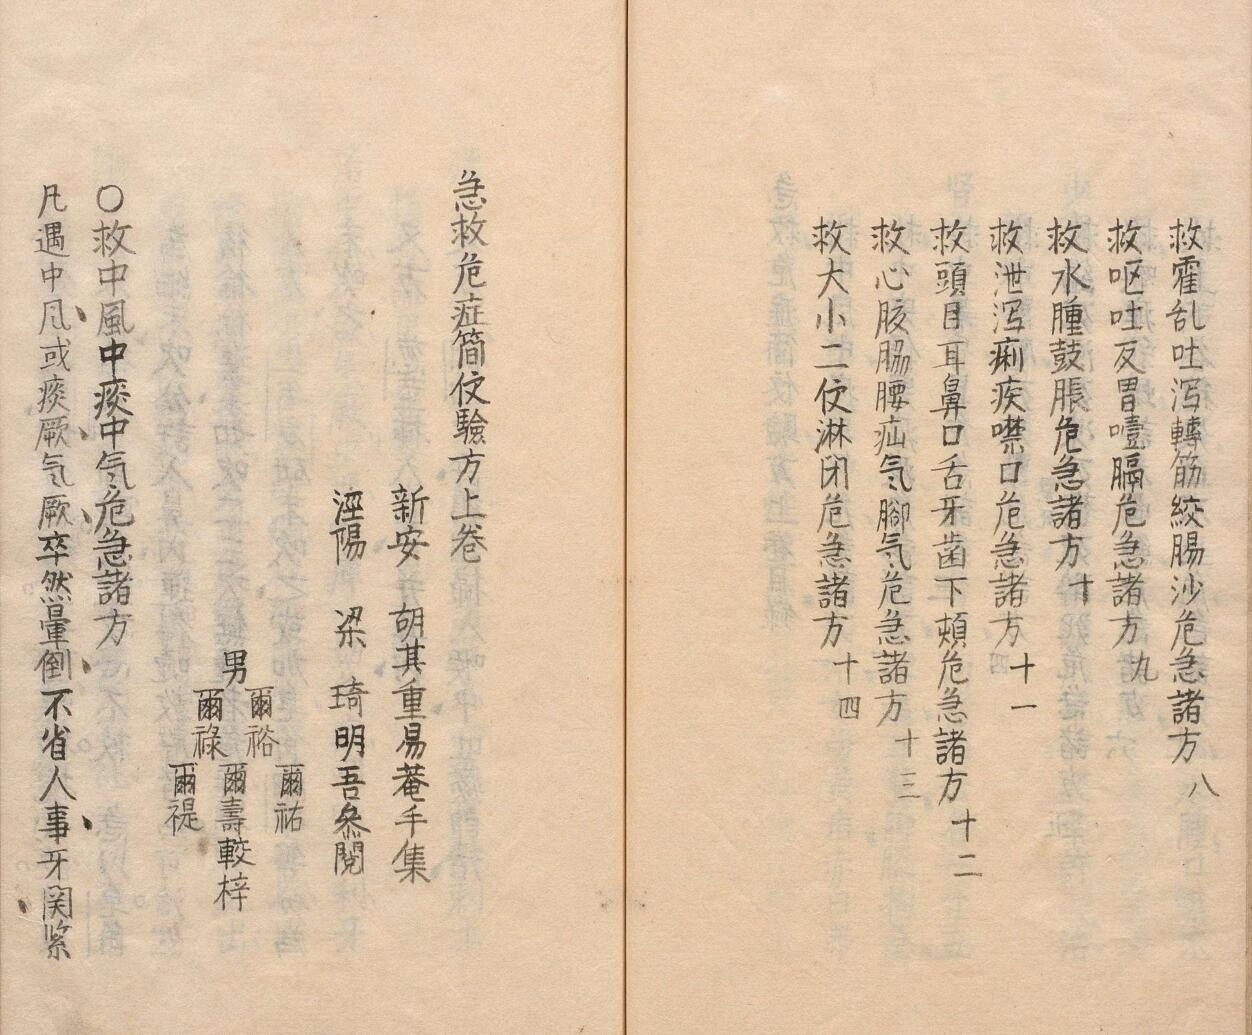 救霍乱吐泻轉筋絞腸沙危急諸方 八
救呕吐反胃噎膈危急諸方 九
救水腫鼓脹危急諸方 十
救泄泻痢疾噤口危急諸方 十一
救頭目耳鼻口舌牙齒下頰危急諸方 十二
救心胲脇腰疝気腳気危急諸方 十三
救大小二便淋闭危急諸方 十四
急救危症簡便驗方上卷
新安 胡其重易菴手集
涇陽 梁 琦明吾叅閱
男
爾裕
爾祿
爾祐
爾壽較梓
爾禔
○救中風中痰中気危急諸方
凡遇中風或痰厥気厥卒然暈倒不省人事牙関紧